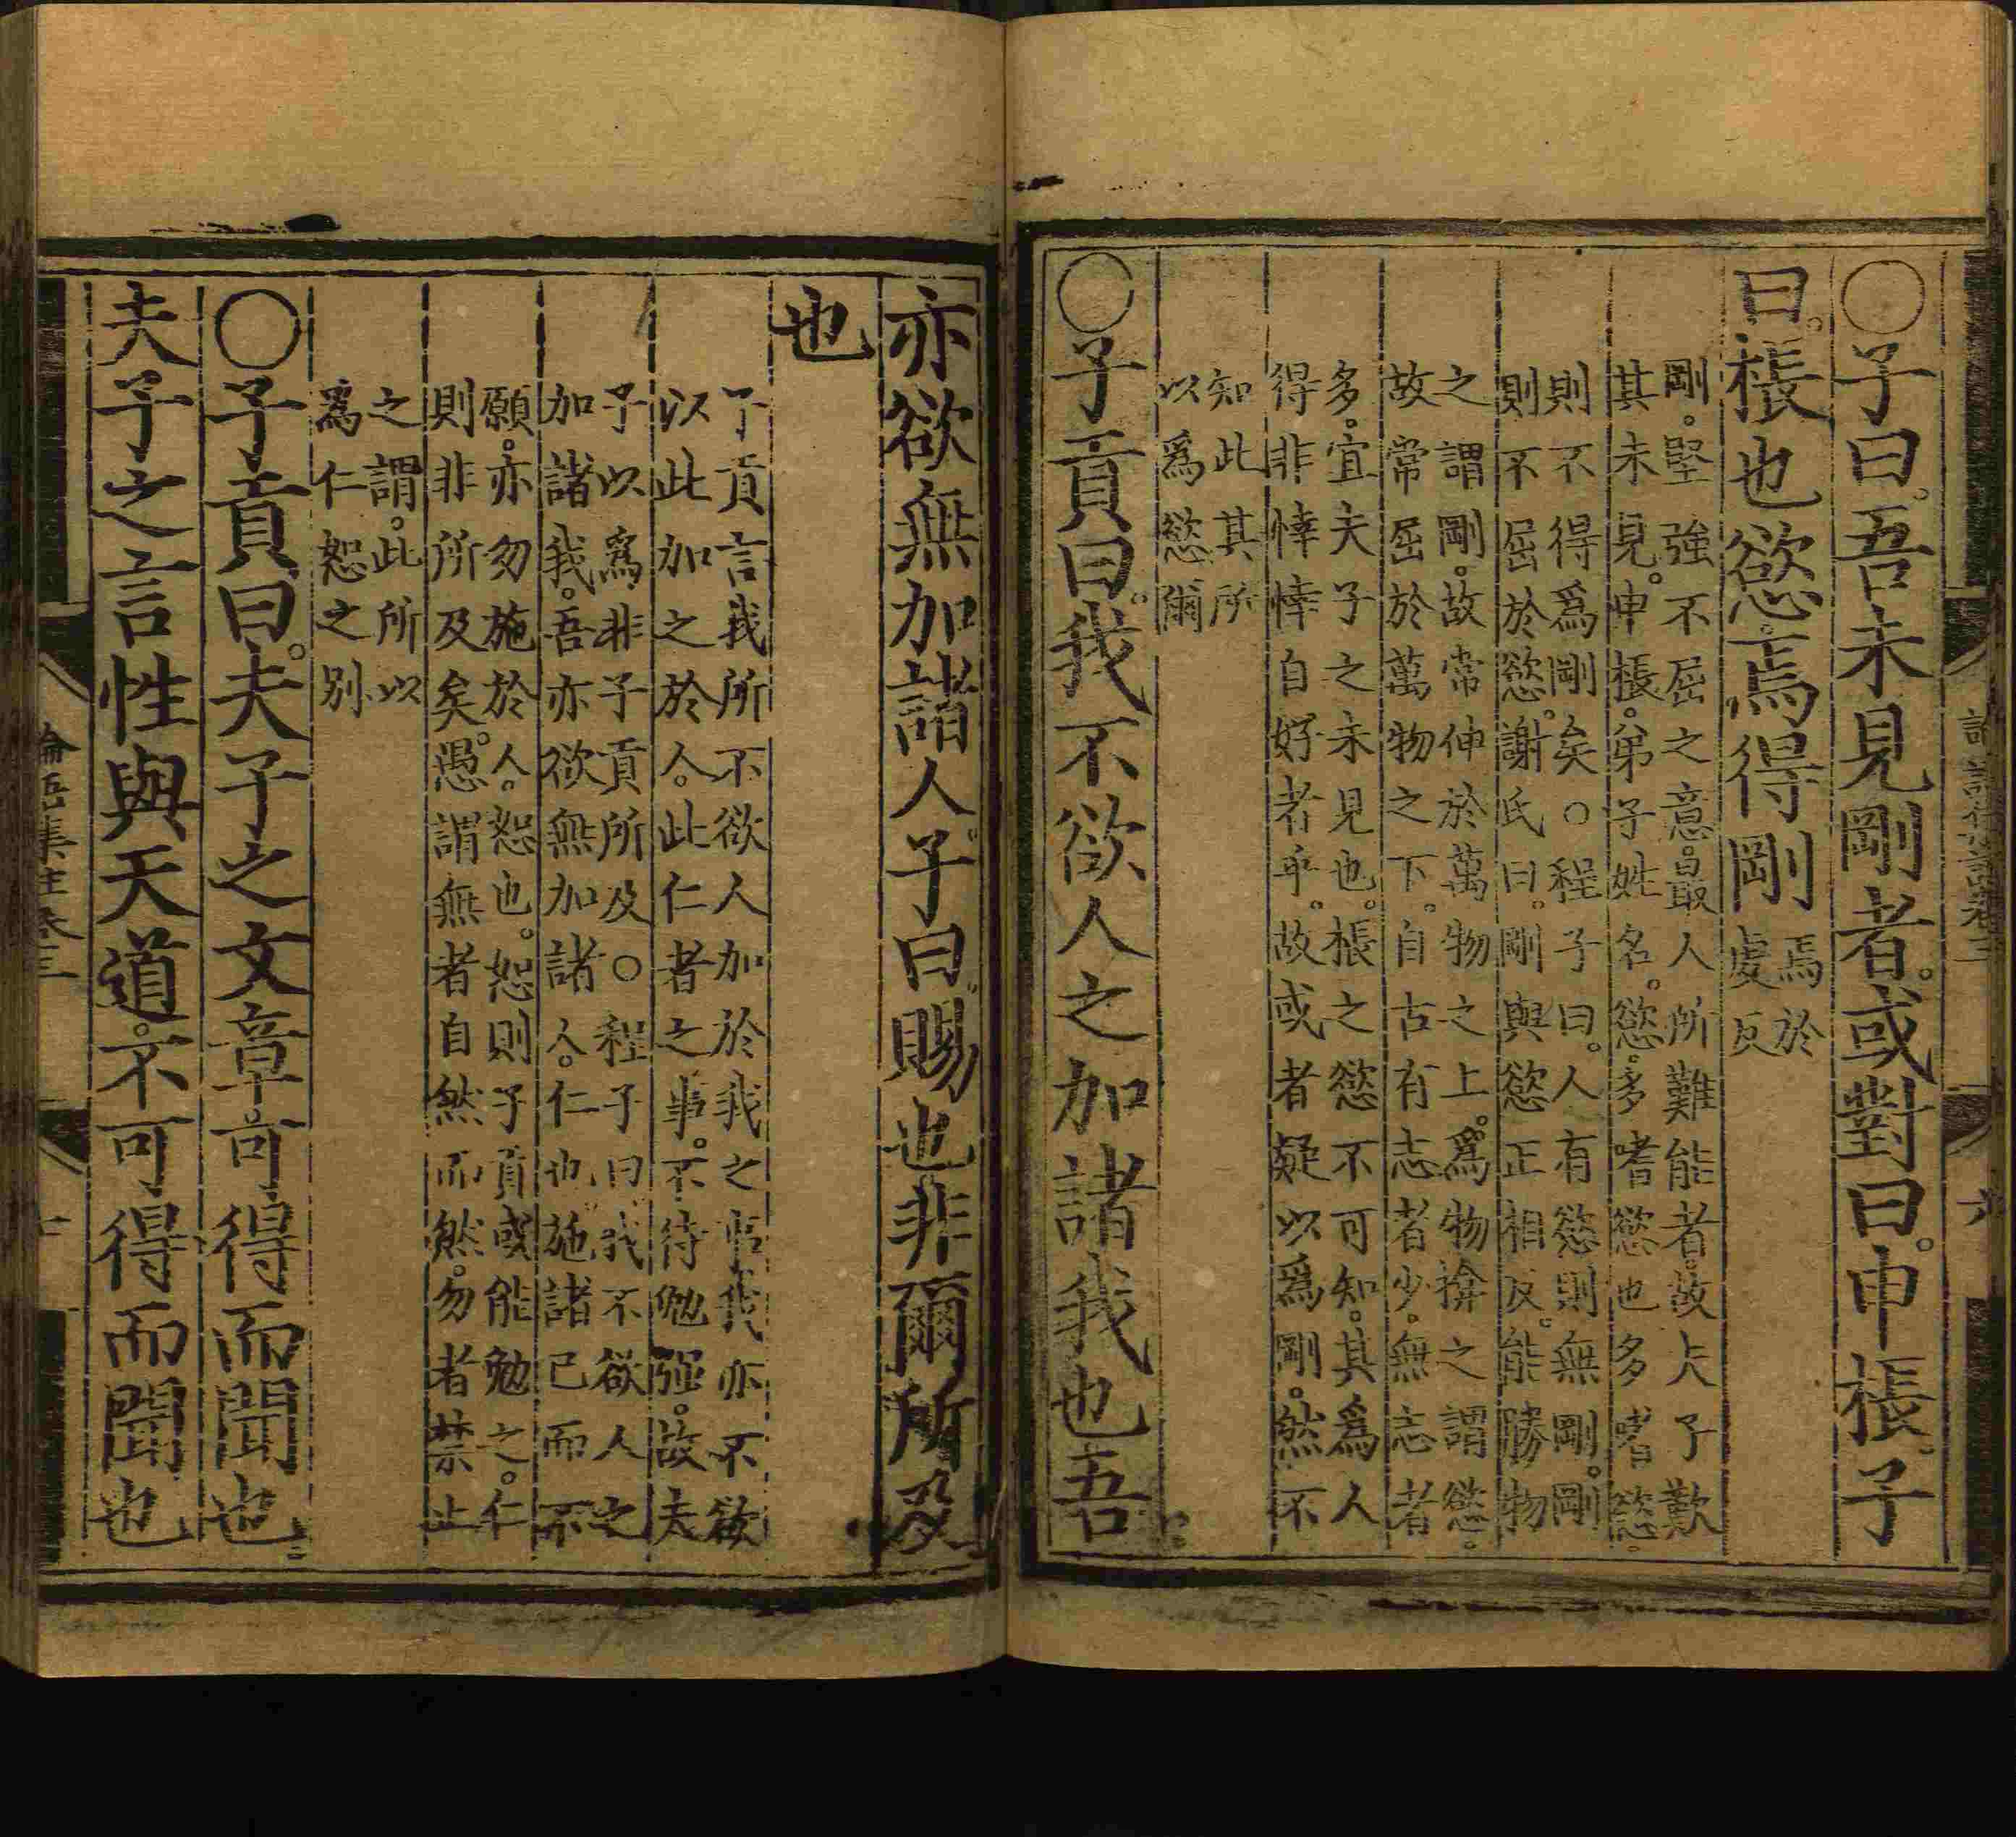 ○子曰。吾未見剛者。或對曰。申棖。子
曰。棖也慾。焉得剛
焉於
虔反
剛。堅強不屈之意。最人所難能者。故夫子歎
其未見。申棖。弟子姓名。慾。多嗜慾也多嗜慾。
則不得爲剛矣○程子曰。人有慾則無剛。剛
則不屈於慾。謝氏曰。剛與慾正相反。能勝物
之謂剛。故常伸於萬物之上。爲物揜之謂慾。
故常屈於萬物之下。自古有志者少。無志者
多。宜夫子之未見也。棖之慾不可知。其爲人
得非悻悻自好者乎。故或者疑以爲剛。然不
知此其所
以爲慾爾
○子貢曰。我不欲人之加諸我也吾
亦欲無加諸人。子曰。賜也非爾所及
也
子貢言我所不欲人加於我之事我亦不欲
以此加之於人。此仁者之事。不待勉强。故夫
子以爲非子貢所及○程子曰我不欲人之
加諸我。吾亦欲無加諸人。仁也施諸己而不
願。亦勿施於人。恕也。恕則子貢或能勉之。仁
則非所及矣。愚謂無者自然而然。勿者禁止
之謂。此所以
爲仁恕之别
○子貢曰。夫子之文章。可得而聞也
夫子之言性與天道。不可得而聞也
論語集註卷三